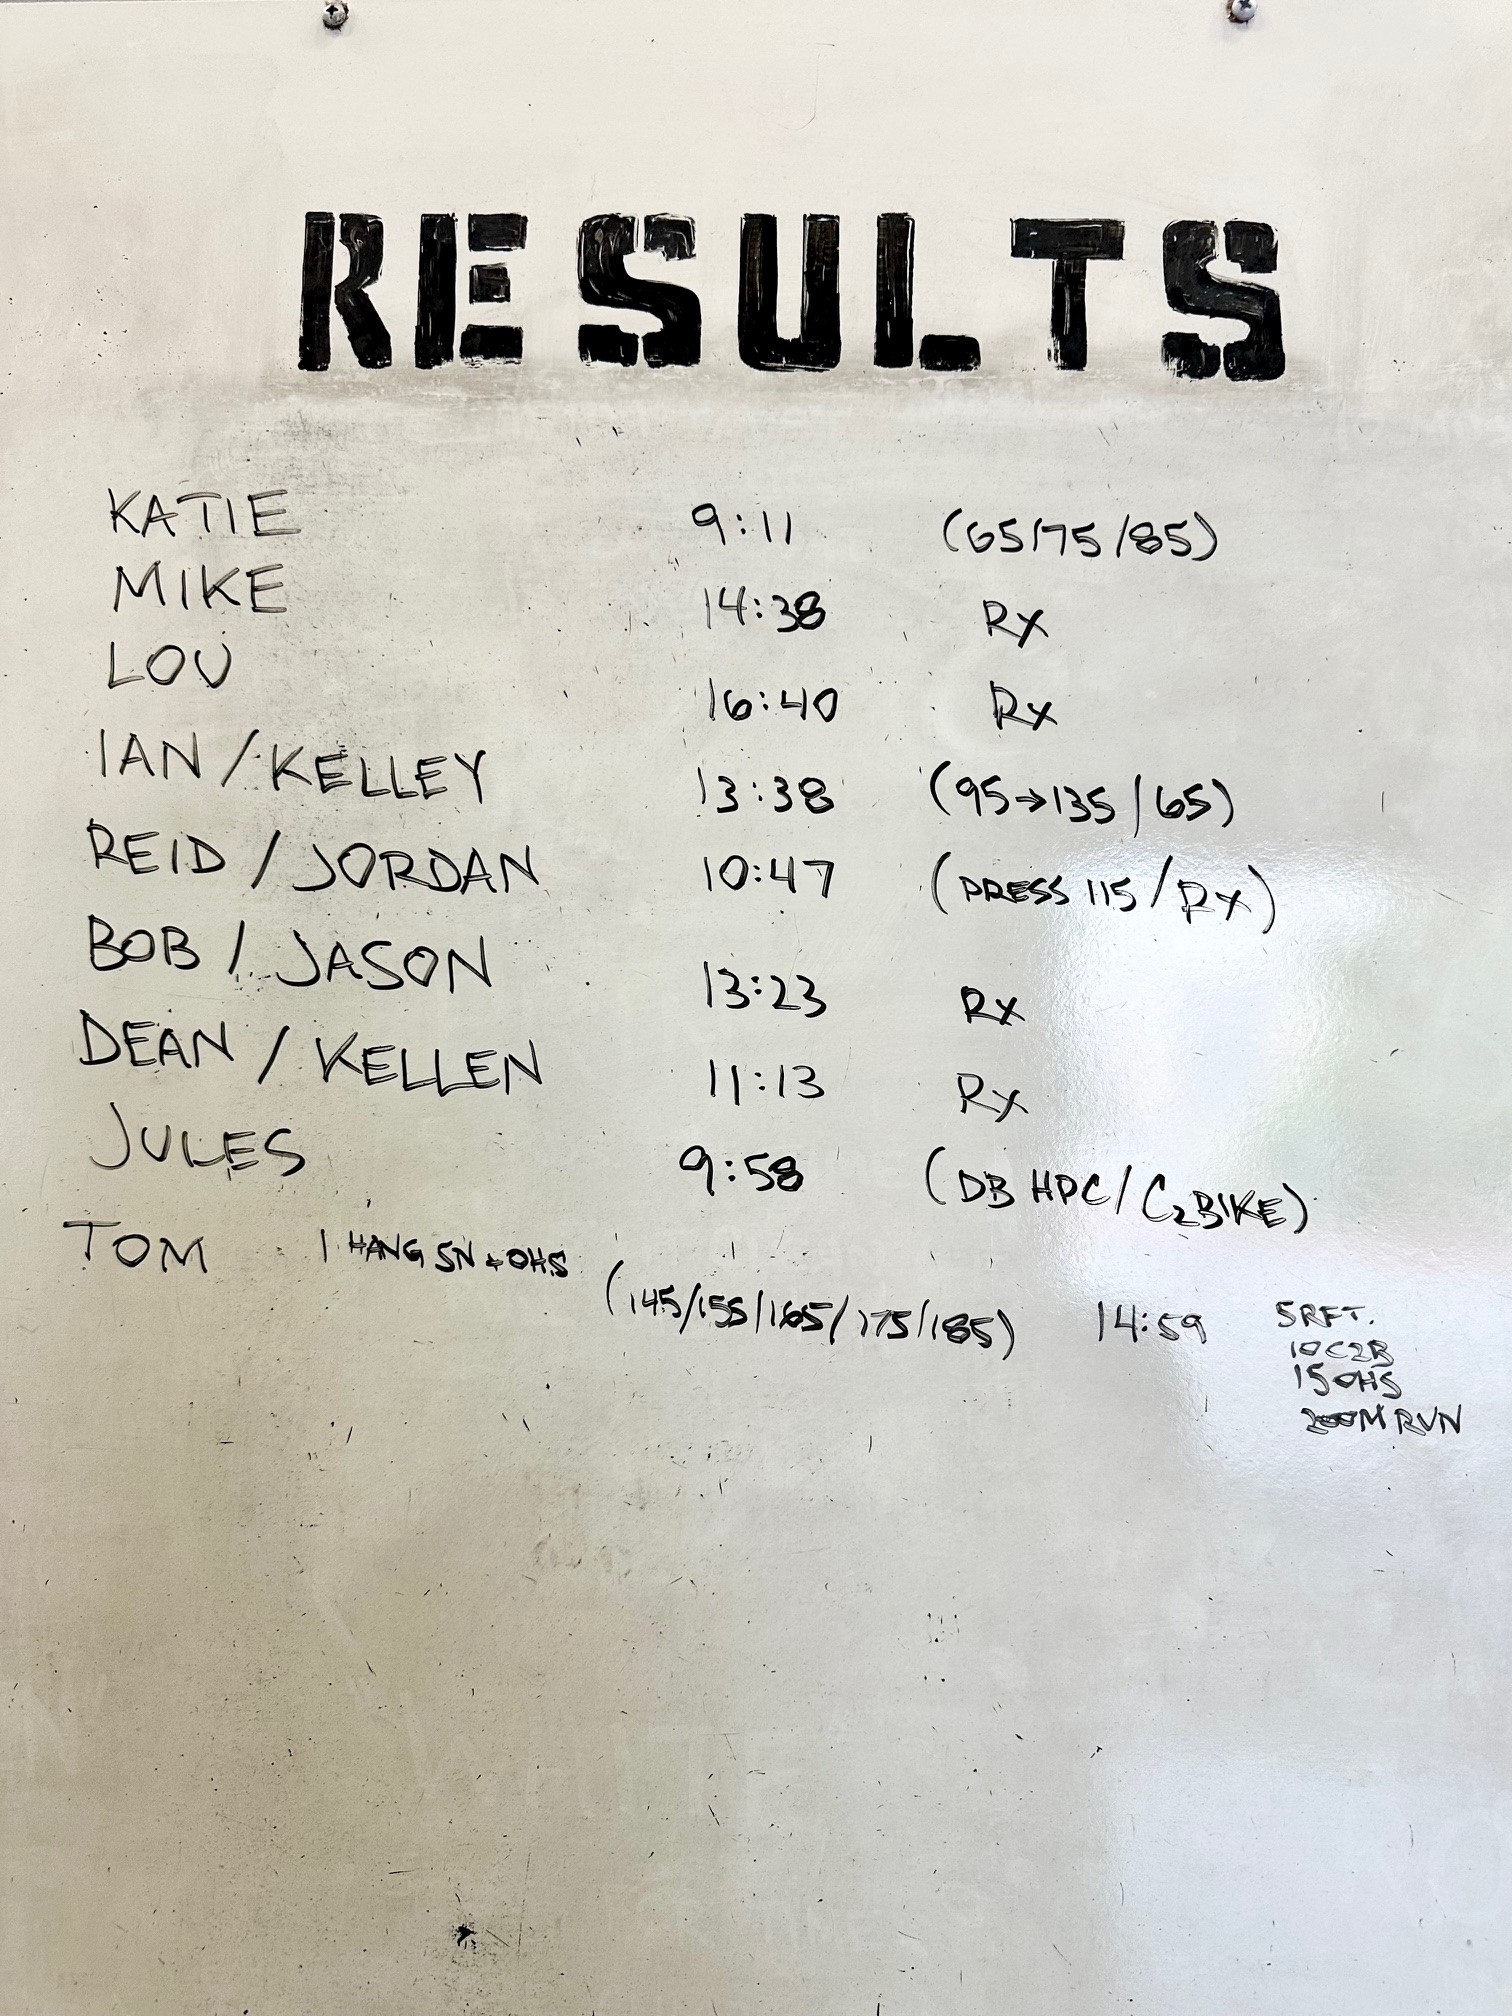 RESULTS
KATIE 9:11 (65/75/85)
MIKE 14:38 Rx
LOU 16:40 Rx
IAN / KELLEY 13:38 (95→135/65)
REID / JORDAN 10:47 (PRESS 115/Rx)
BOB / JASON 13:23 Rx
DEAN / KELLEN 11:13 Rx
JULES 9:58 (DB HPC/C2BIKE)
TOM 1 HANG SN + OHS (145/155/165/175/185) 14:59 5RFT.
10C2B
15OHS
200M RUN